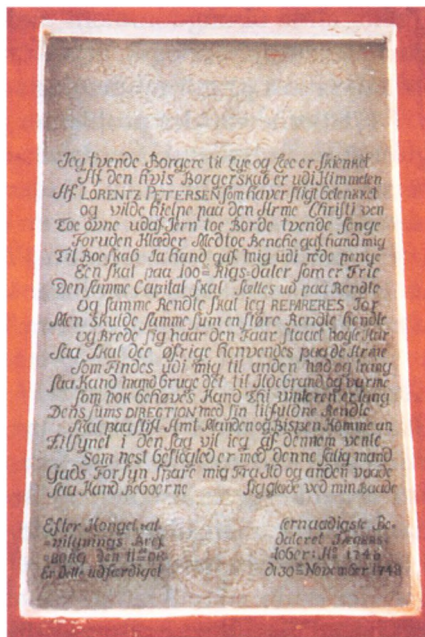 Jeg tvende Borgere til Lye og Lee er skienket
Af den hvis Borgerskab er udi Himmelen
Af LORENTZ PETERSEN som haver sligt betenkket
og vilde hielpe paa den Arme Christi ven
Toe ovne udaf Jern toe Borde tvende senge
Foruden Klæder Med toe Benche gaf hand mig
Til Boeskab Ja hand gaf mig udi rede penge
Een skat paa 100 Rigs-daler som er Frie
Den samme Capital skal Sættes ud paa Rendte
og samme Rendte skal ieg REPARERES for
Men skulde samme sum en større Rendte hendte
og Brede sig naar den Faar staaet nogle Aar
saa skal det øfrige henvendes paa de Arme
som Findes udi mig til anden nød og trang
saa Kand mand bruge det til Ildebrand og varme
som nok behøves Kand Thi vinteren er lang
Dens sums DIRECTION med sin tilfuldne Rendte
skal paa Stift Amt Manden og Bispen Komme an
Tilsynet i den sag vil ieg af dennem vente
Som nest besleglet er med denne salig mand
Guds Forsyn spare mig Fra Ild og anden vaade
saa Kand Beboerne sig glæde ved min Baade
Efter Konget. al- lernaadigste Be-
villgnings Bref dateret Jægers-
BORG den 11 oc- tober: A° 1748
Er Dette udfærdiget d: 30 November 1748